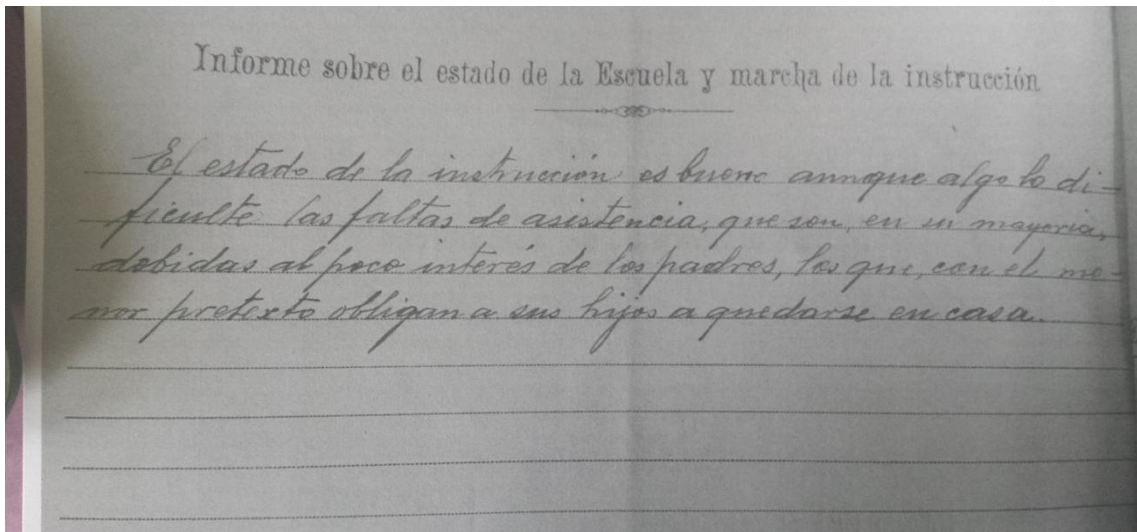 Informe sobre el estado de la Escuela y marcha de la instrucción
El estado de la instrucción es bueno aunque algo lo di-
ficulte las faltas de asistencia, que son, en su mayoria,
debidas al poco interés de los padres, los que, con el me-
nor pretexto obligan a sus hijos a quedarse en casa.